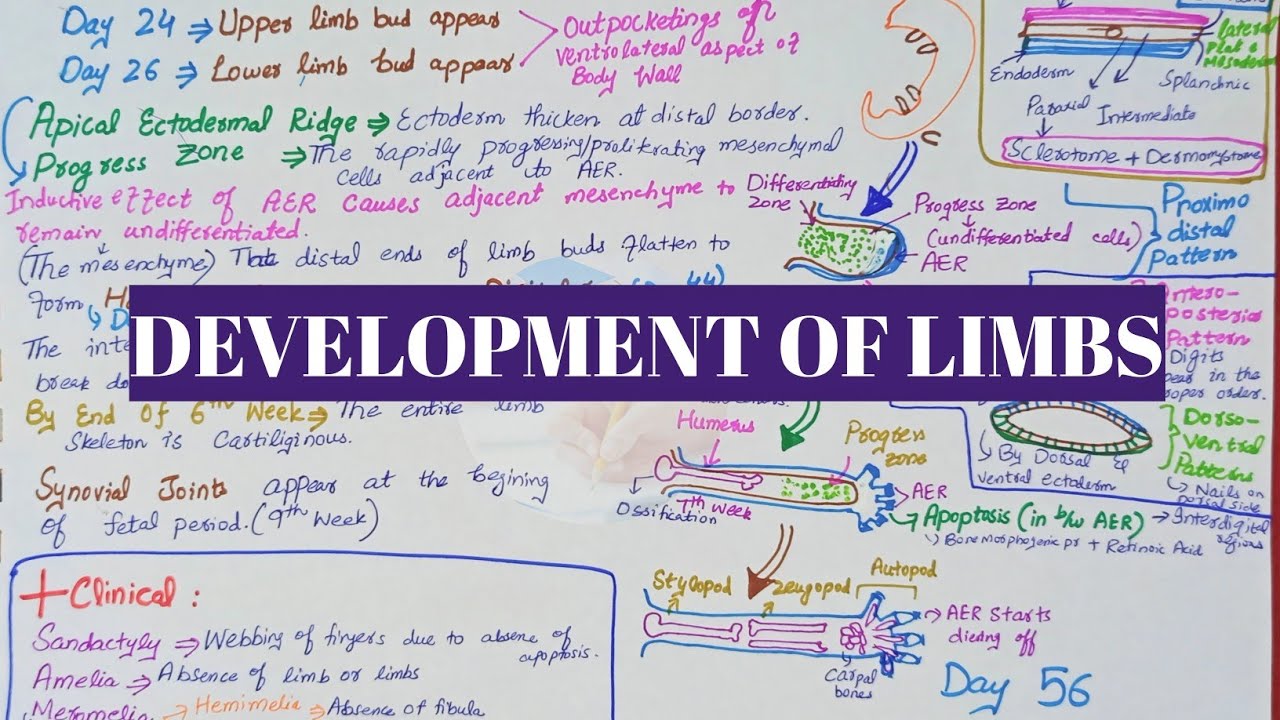 Day 24 ⇒ Upper limb bud appears
Day 26 ⇒ Lower limb bud appears
Outpocketings of
ventrolateral aspect of
Body Wall
Apical Ectodermal Ridge ⇒ Ectoderm thicken at distal border.
Progress Zone ⇒ The rapidly progressing/proliferating mesenchymal
cells adjacent to AER.
Inductive effect of AER causes adjacent mesenchyme to
remain undifferentiated.
(The mesenchyme) The distal ends of limb buds flatten to
form
The
break
By End of 6th Week ⇒ The entire limb
Skeleton is Cartiliginous.
Synovial Joints appear at the begining
of fetal period. (9th Week)
+Clinical :
Sandactyly ⇒ Webbing of fingers due to absene of
apoptosis.
Amelia ⇒ Absence of limb or limbs
Meromelia → Hemimelia ⇒ Absence of fibula
DEVELOPMENT OF LIMBS
lateral
Plat e
Mesoderm
Endoderm
Splanchnic
Paraxial
Intermediate
Sclerotome + Dermomyotome
Differentiating
zone
Progress Zone
(undifferentiated cells)
AER
Proximo
distal
pattern
Antero-
posterior
Pattern
Digits
in the
order.
By Dorsal &
Ventral ectoderm
Dorso-
Ventral
Patterns
Nails on
Dorsal side
Humerus
Progress
zone
Ossification
7th Week
AER
Apoptosis (in b/w AER) → Interdigital
regions
Bone morphogenic pr + Retinoic Acid
Stylopod
Zeugopod
Autopod
Carpal
bones
AER Starts
dieing off
Day 56